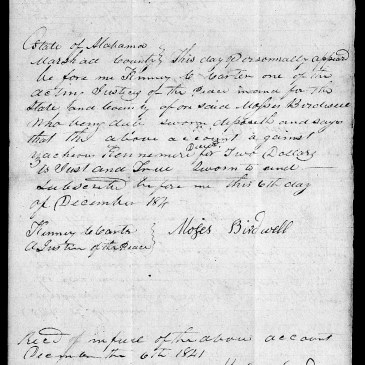 State of Alabama
Marshall County } This day Personally appeard
be fore me Kinney C Carter one of the
acting Justices of the Peace in and for the
State and County afore said Moses Birdwell
Who being duly sworn deposeth and says
that the above account against
Zacheous Kennemore Decd for Two Dollars
is Just and True Sworn to and
Subscribe before me this 6th day
of December 184
Kinney C Carter } Moses Birdwell
A Justice of the Peace
Recd in full of the above account
December the 6th 1841